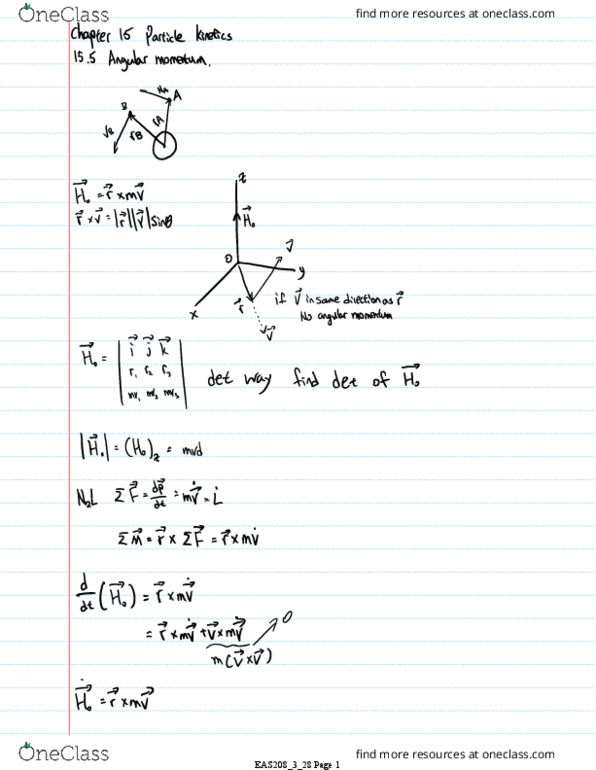 OneClass find more resources at oneclass.com
Chapter 15 Particle kinetics
15.5 Angular momentum.
A
B
rA
VB
rB
H⃗₀ = r⃗ × mv⃗
r⃗ × v⃗ = |r⃗||v⃗| sinθ
z
H⃗₀
O
v⃗
y
r⃗
x
v⃗
if v⃗ in same direction as r⃗
No angular momentum
H⃗₀ = | i⃗ j⃗ k⃗ |
r₁ r₂ r₃
mv₁ mv₂ mv₃
det way find det of H⃗₀
|H⃗₀| = (H₀)z = mvd
N2L ΣF⃗ = dp⃗/dt = mv̇⃗ = L̇
ΣM⃗ = r⃗ × ΣF⃗ = r⃗ × mv̇
d/dt (H⃗₀) = r⃗ × mv̇⃗
= r⃗ × mv̇⃗ + v⃗ × mv⃗ 0
m(v⃗ × v⃗)
Ḣ⃗₀ = r⃗ × mv⃗
OneClass find more resources at oneclass.com
EAS208_3_28 Page 1